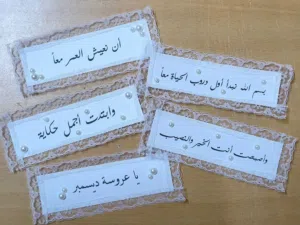 أن نعيش العمر معاً
بسم الله نبدأ أول دروب الحياة معاً
وابتدت أجمل حكاية
وأصبحت أنت الخير والنصيب
يا عروسة ديسمبر